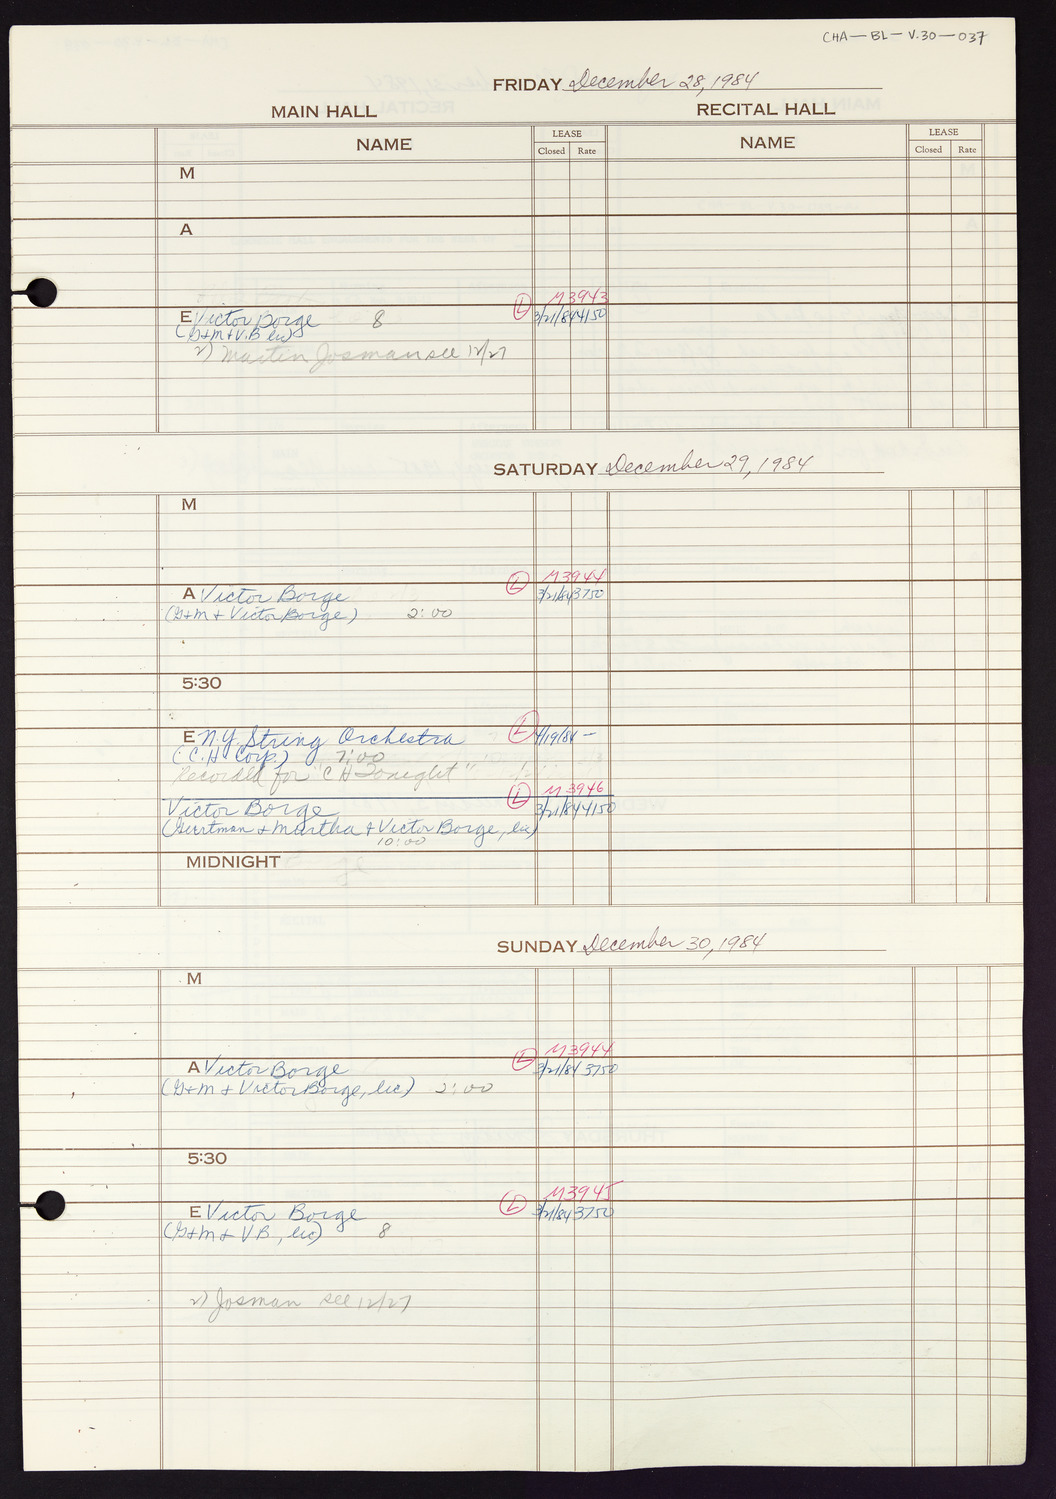 CHA—BL—V.30—037
FRIDAY December 28, 1984
MAIN HALL RECITAL HALL
NAME LEASE NAME LEASE
Closed Rate Closed Rate
M
A
L M3943
E Victor Borge 8 3/21/84 4150
(G+M+V.B. Inc)
2) Martin Josman see 12/27
SATURDAY December 29, 1984
M
L M3944
A Victor Borge 3/21/84 3750
(G+M + Victor Borge) 2:00
5:30
E N.Y. String Orchestra L 4/19/84 —
(C.H. Corp.) 7:00
Recorded for "CH Tonight"
L M3946
Victor Borge 3/21/84 4150
(Gurtman + Martha + Victor Borge, Inc)
10:00
MIDNIGHT
SUNDAY December 30, 1984
M
L M3944
A Victor Borge 3/21/84 3750
(G+M + Victor Borge, Inc) 2:00
5:30
L M3945
E Victor Borge 3/21/84 3750
(G+M+ V.B., Inc) 8
2) Josman see 12/27